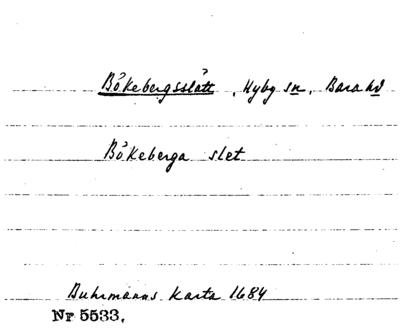 Bökebergsslätt, Hyby sn, Bara hd
Bökeberga slet
Buhrmanns Karta 1684
Nr 5533.